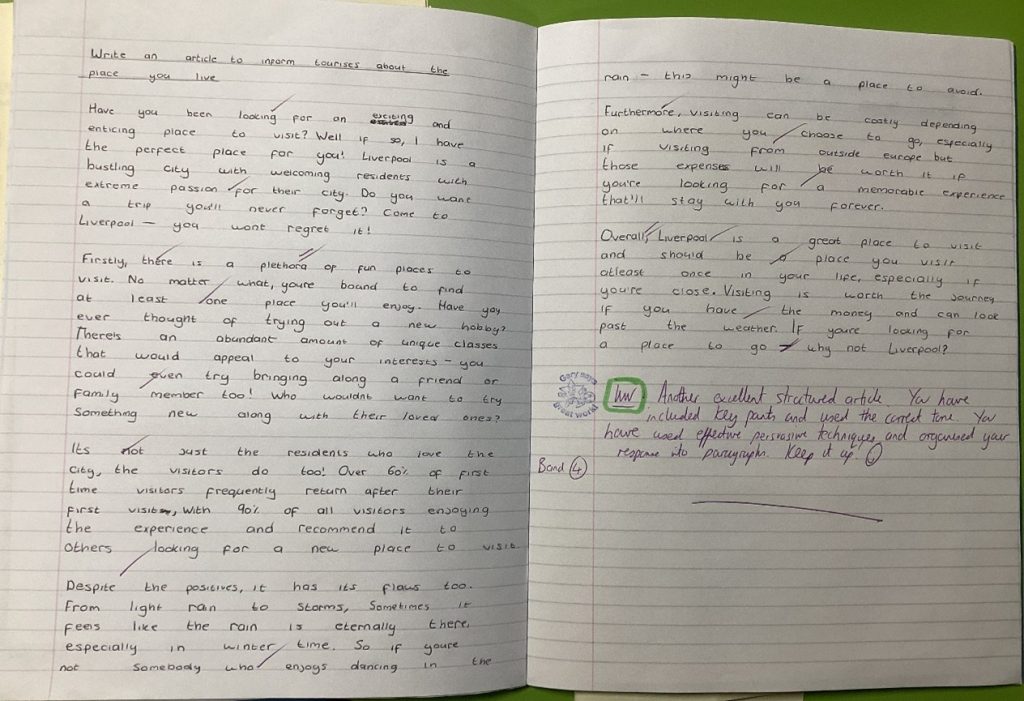 Write an article to inform tourises about the
place you live
Have you been looking for an exciting and
enticing place to visit? Well if so, I have
the perfect place for you! Liverpool is a
bustling city with welcoming residents with
extreme passion for their city. Do you want
a trip you'll never forget? Come to
Liverpool - you wont regret it!
Firstly, there is a plethora of fun places to
visit. No matter what, youre bound to find
at least one place you'll enjoy. Have you
ever thought of trying out a new hobby?
Thereis an abundant amount of unique classes
that would appeal to your interests - you
could even try bringing along a friend or
family member too! Who wouldnt want to try
something new along with their loved ones?
Its not just the residents who love the
city, the visitors do too! Over 60% of first
time visitors frequently return after their
first visit, with 90% of all visitors enjoying
the experience and recommend it to
others looking for a new place to visit.
Despite the positives, it has its flaws too.
From light rain to storms, Sometimes it
feels like the rain is eternally there,
especially in winter time. So if youre
not somebody who enjoys dancing in the
rain - this might be a place to avoid.
Furthermore, visiting can be costly depending
on where you choose to go, especially
if visiting from outside europe but
those expenses will be worth it if
you're looking for a memorable experience
that'll stay with you forever.
Overall, Liverpool is a great place to visit
and should be a place you visit
atleast once in your life, especially if
you're close. Visiting is worth the journey
if you have the money and can look
past the weather. If youre looking for
a place to go - why not Liverpool?
Gary says
Great work!
hw Another excellent structured article. You have
included key parts and used the correct tone. You
have used effective persuasive techniques and organised your
response into paragraphs. Keep it up.
Band 4